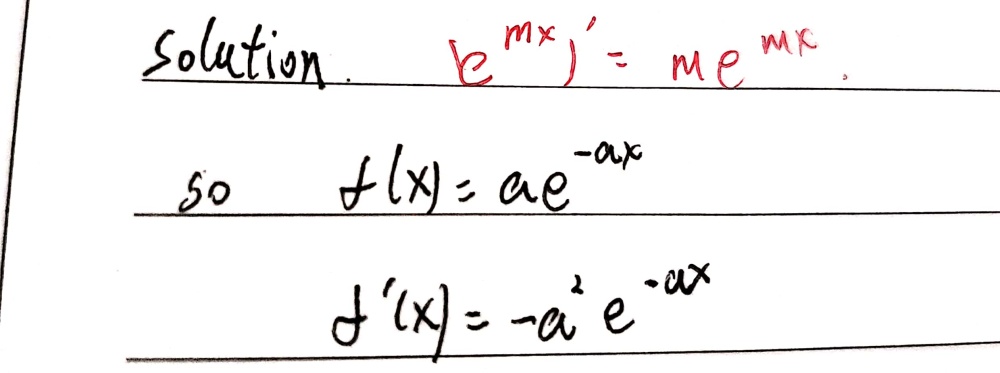 Solution. (e^{mx})' = me^{mx}.
so f(x) = ae^{-ax}
f'(x) = -a^2 e^{-ax}